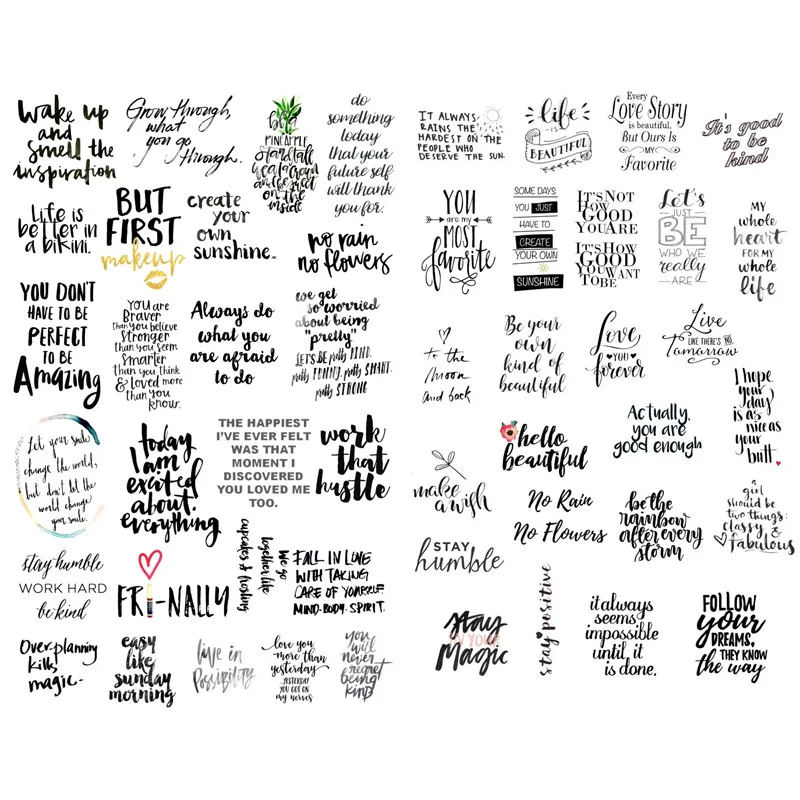 wake up
and
smell the
inspiration
Grow through,
what
you go
through.
be a
PINEAPPLE
stand tall
wear a crown
and be sweet
on the
inside
do
something
today
that your
future self
will thank
you for.
Life is
better in
a bikini.
BUT
FIRST
makeup
create
your
own
sunshine.
no rain
no flowers
YOU DON'T
HAVE TO BE
PERFECT
TO BE
Amazing
You are
Braver
than you believe
Stronger
than you seem
Smarter
than you think
& Loved more
than you
know.
Always do
what you
are afraid
to do
we get
so worried
about being
"pretty"
LET'S BE pretty KIND.
pretty FUNNY. pretty SMART.
pretty STRONG
Let your smile
change the world,
but don't let the
world change
your smile.
today
I am
excited
about
everything
THE HAPPIEST
I'VE EVER FELT
WAS THAT
MOMENT I
DISCOVERED
YOU LOVED ME
TOO.
work
that
hustle
stay humble
WORK HARD
be kind
FRI-NALLY
we go
together like
cupcakes & frosting
FALL IN LOVE
WITH TAKING
CARE OF YOURSELF
MIND. BODY. SPIRIT.
Over-planning
kills
magic-
easy
like
sunday
morning
live in
Possibility
love you
more than
yesterday
YESTERDAY
YOU GOT ON
my nerves
you
will
never
regret
being
kind
IT ALWAYS
RAINS THE
HARDEST ON THE
PEOPLE WHO
DESERVE THE SUN.
life
IS
BEAUTIFUL
Every
Love Story
is beautiful,
But Ours Is
MY
Favorite
It's good
to be
kind
YOU
are my
MOST
favorite
SOME DAYS
YOU JUST
HAVE TO
CREATE
YOUR OWN
SUNSHINE
IT'S NOT
HOW
GOOD
YOU ARE
IT'S HOW
GOOD
YOU WANT
TO BE
Let's
JUST
BE
WHO WE
really
ARE
MY
whole
heart
FOR MY
whole
life
to the
moon
and back
Be your
own
kind of
beautiful
Love
YOU
forever
Live
LIKE THERE'S NO
Tomorrow
I hope
your
day
is as
nice as
your
butt
make
a wish
hello
beautiful
Actually,
you are
good enough
No Rain
No Flowers
be the
rainbow
after every
storm
a
girl
should be
two things:
classy &
fabulous
STAY
humble
stay
IN YOUR
Magic
stay positive
it always
seems
impossible
until it
is done.
FOLLOW
your
DREAMS,
THEY KNOW
the way